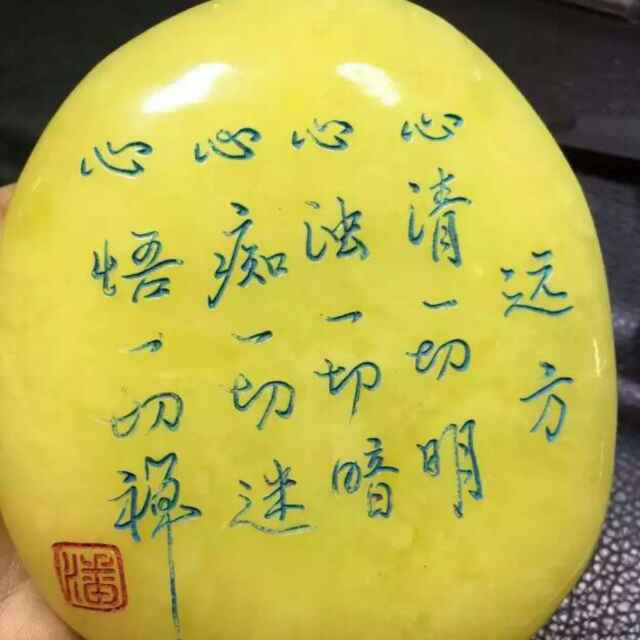 远方
心清一切明
心浊一切暗
心痴一切迷
心悟一切禅
潘